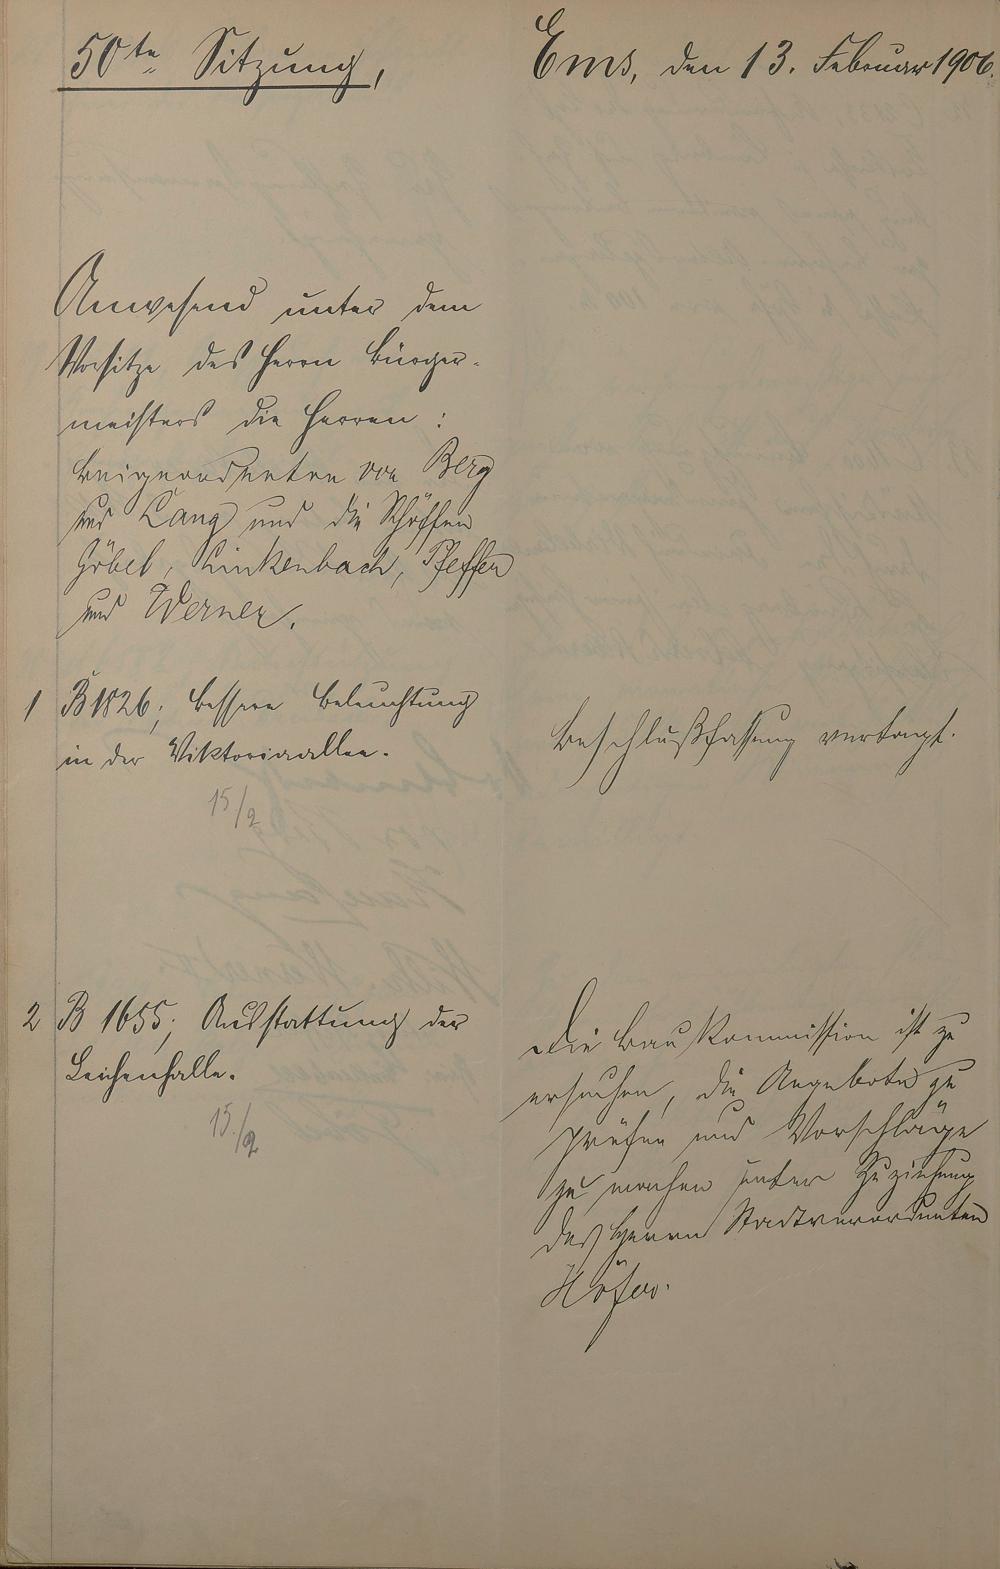 50te Sitzung,
Ems, den 13. Februar 1906.
Anwesend unter dem
Vorsitze des Herrn Bürger-
meisters die Herren:
Beigeordneten von Berg
und Lang und die Schöffen
Göbel, Linkenbach, Pfeffer
und Werner.
1 B 1826; bessere Beleuchtung
in der Viktoriaallee.
15/2
Beschlußfassung vertagt.
2 B 1655; Ausstattung der
Leichenhalle.
15/2
Die Baukommission ist zu
ersuchen, die Angebote zu
prüfen und Vorschläge
zu machen unter Zuziehung
des Herrn Stadtverordneten
Höfer.